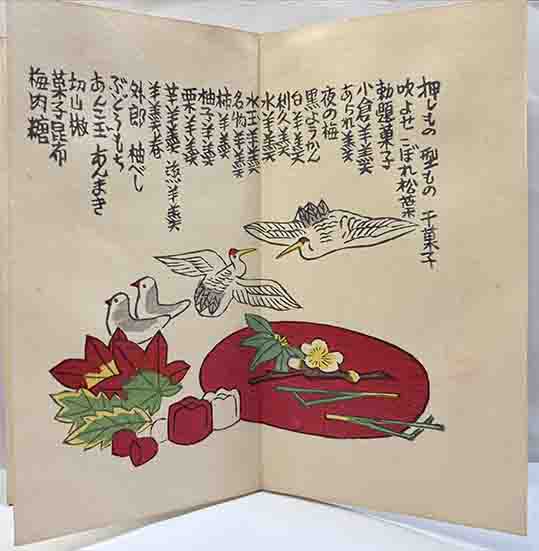 押しもの 型もの 干菓子
吹よせ こぼれ松葉
勅題菓子
小倉羊羹
あられ羹
夜の梅
黒ようかん
白羊羹
利久羹
水羊羹
水玉羊羹
名物羊羹
柿羊羹
柚子羊羹
栗羊羹
芋羊羹 蒸羊羹
羊羹巻
外郎 柚べし
ぶどうもち
あんこ玉 あんまき
切山椒
菓子昆布
梅肉糖